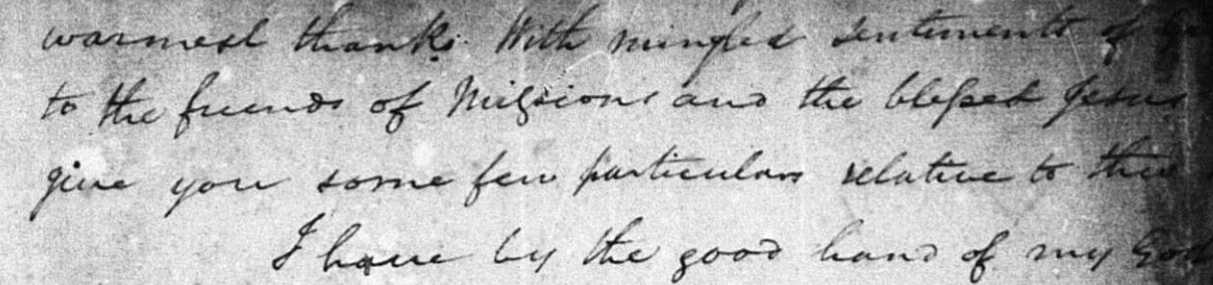 warmest thanks. With mingled sentiments of
to the friends of Missions and the blessed Jesus
give you some few particulars relative to this
I have by the good hand of my God